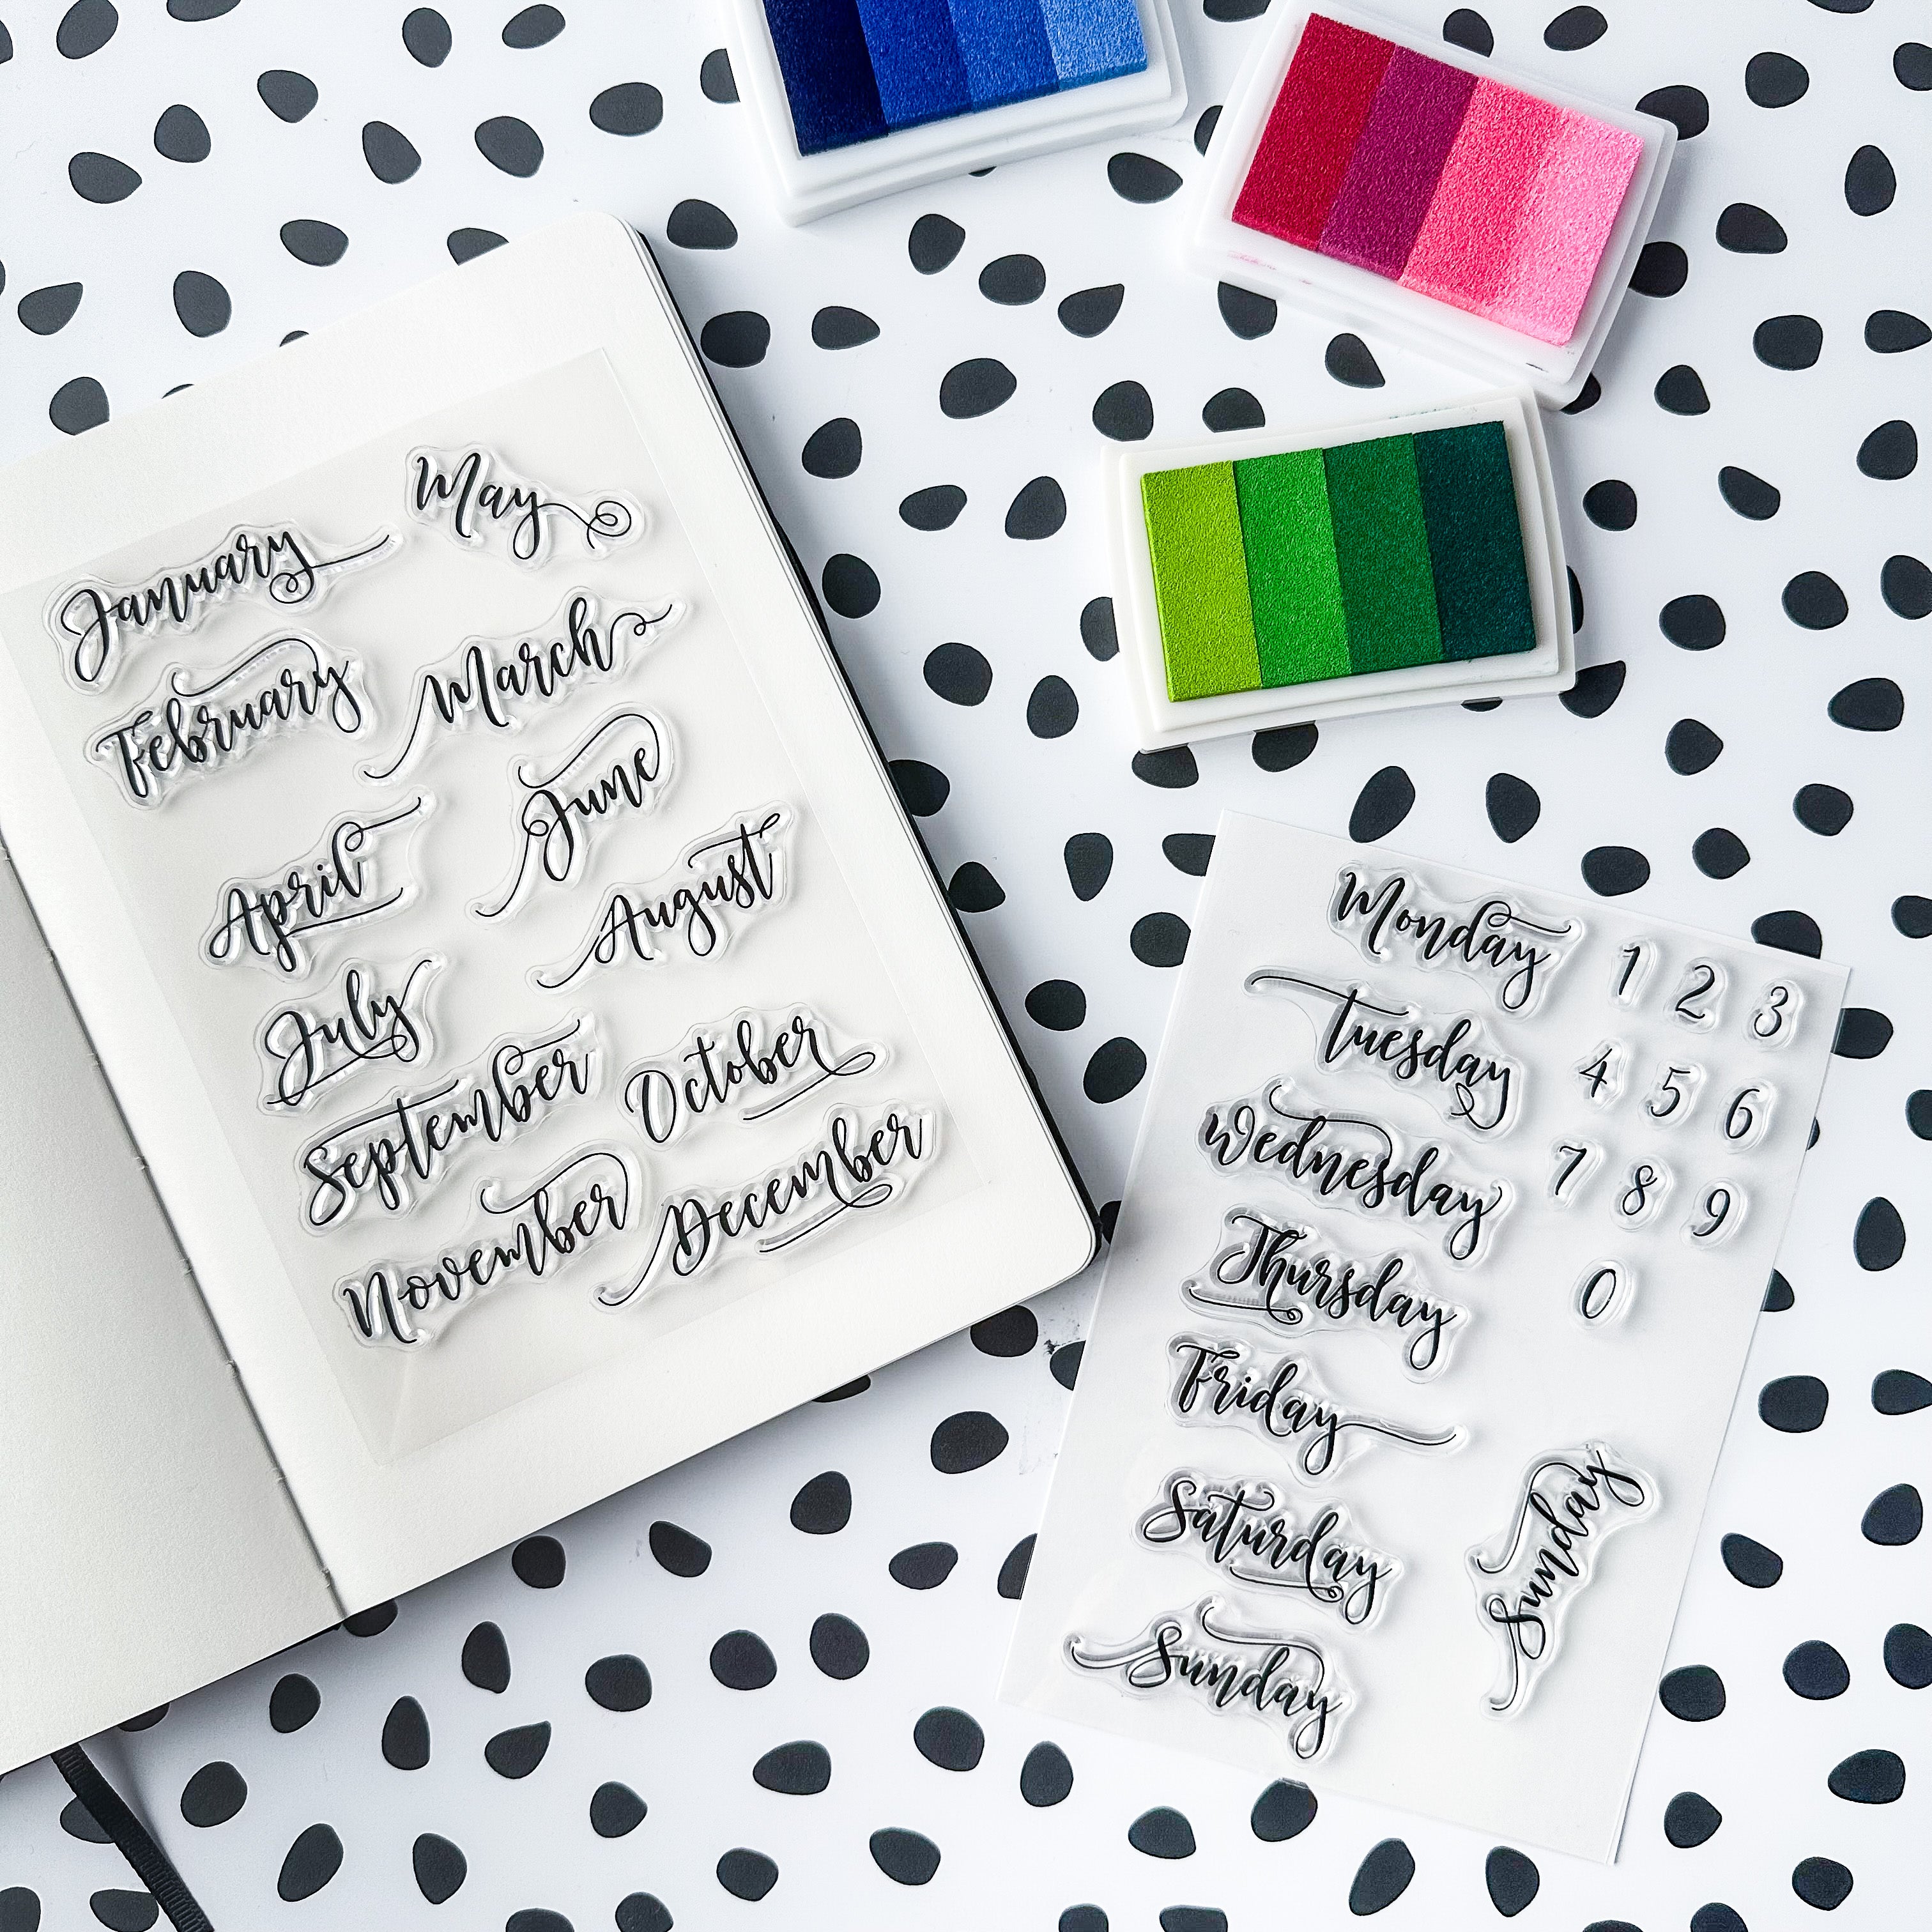 May
January
March
February
June
April
August
July
October
September
December
November
Monday 1 2 3
tuesday 4 5 6
Wednesday 7 8 9
Thursday 0
Friday
Saturday
Sunday
Sunday